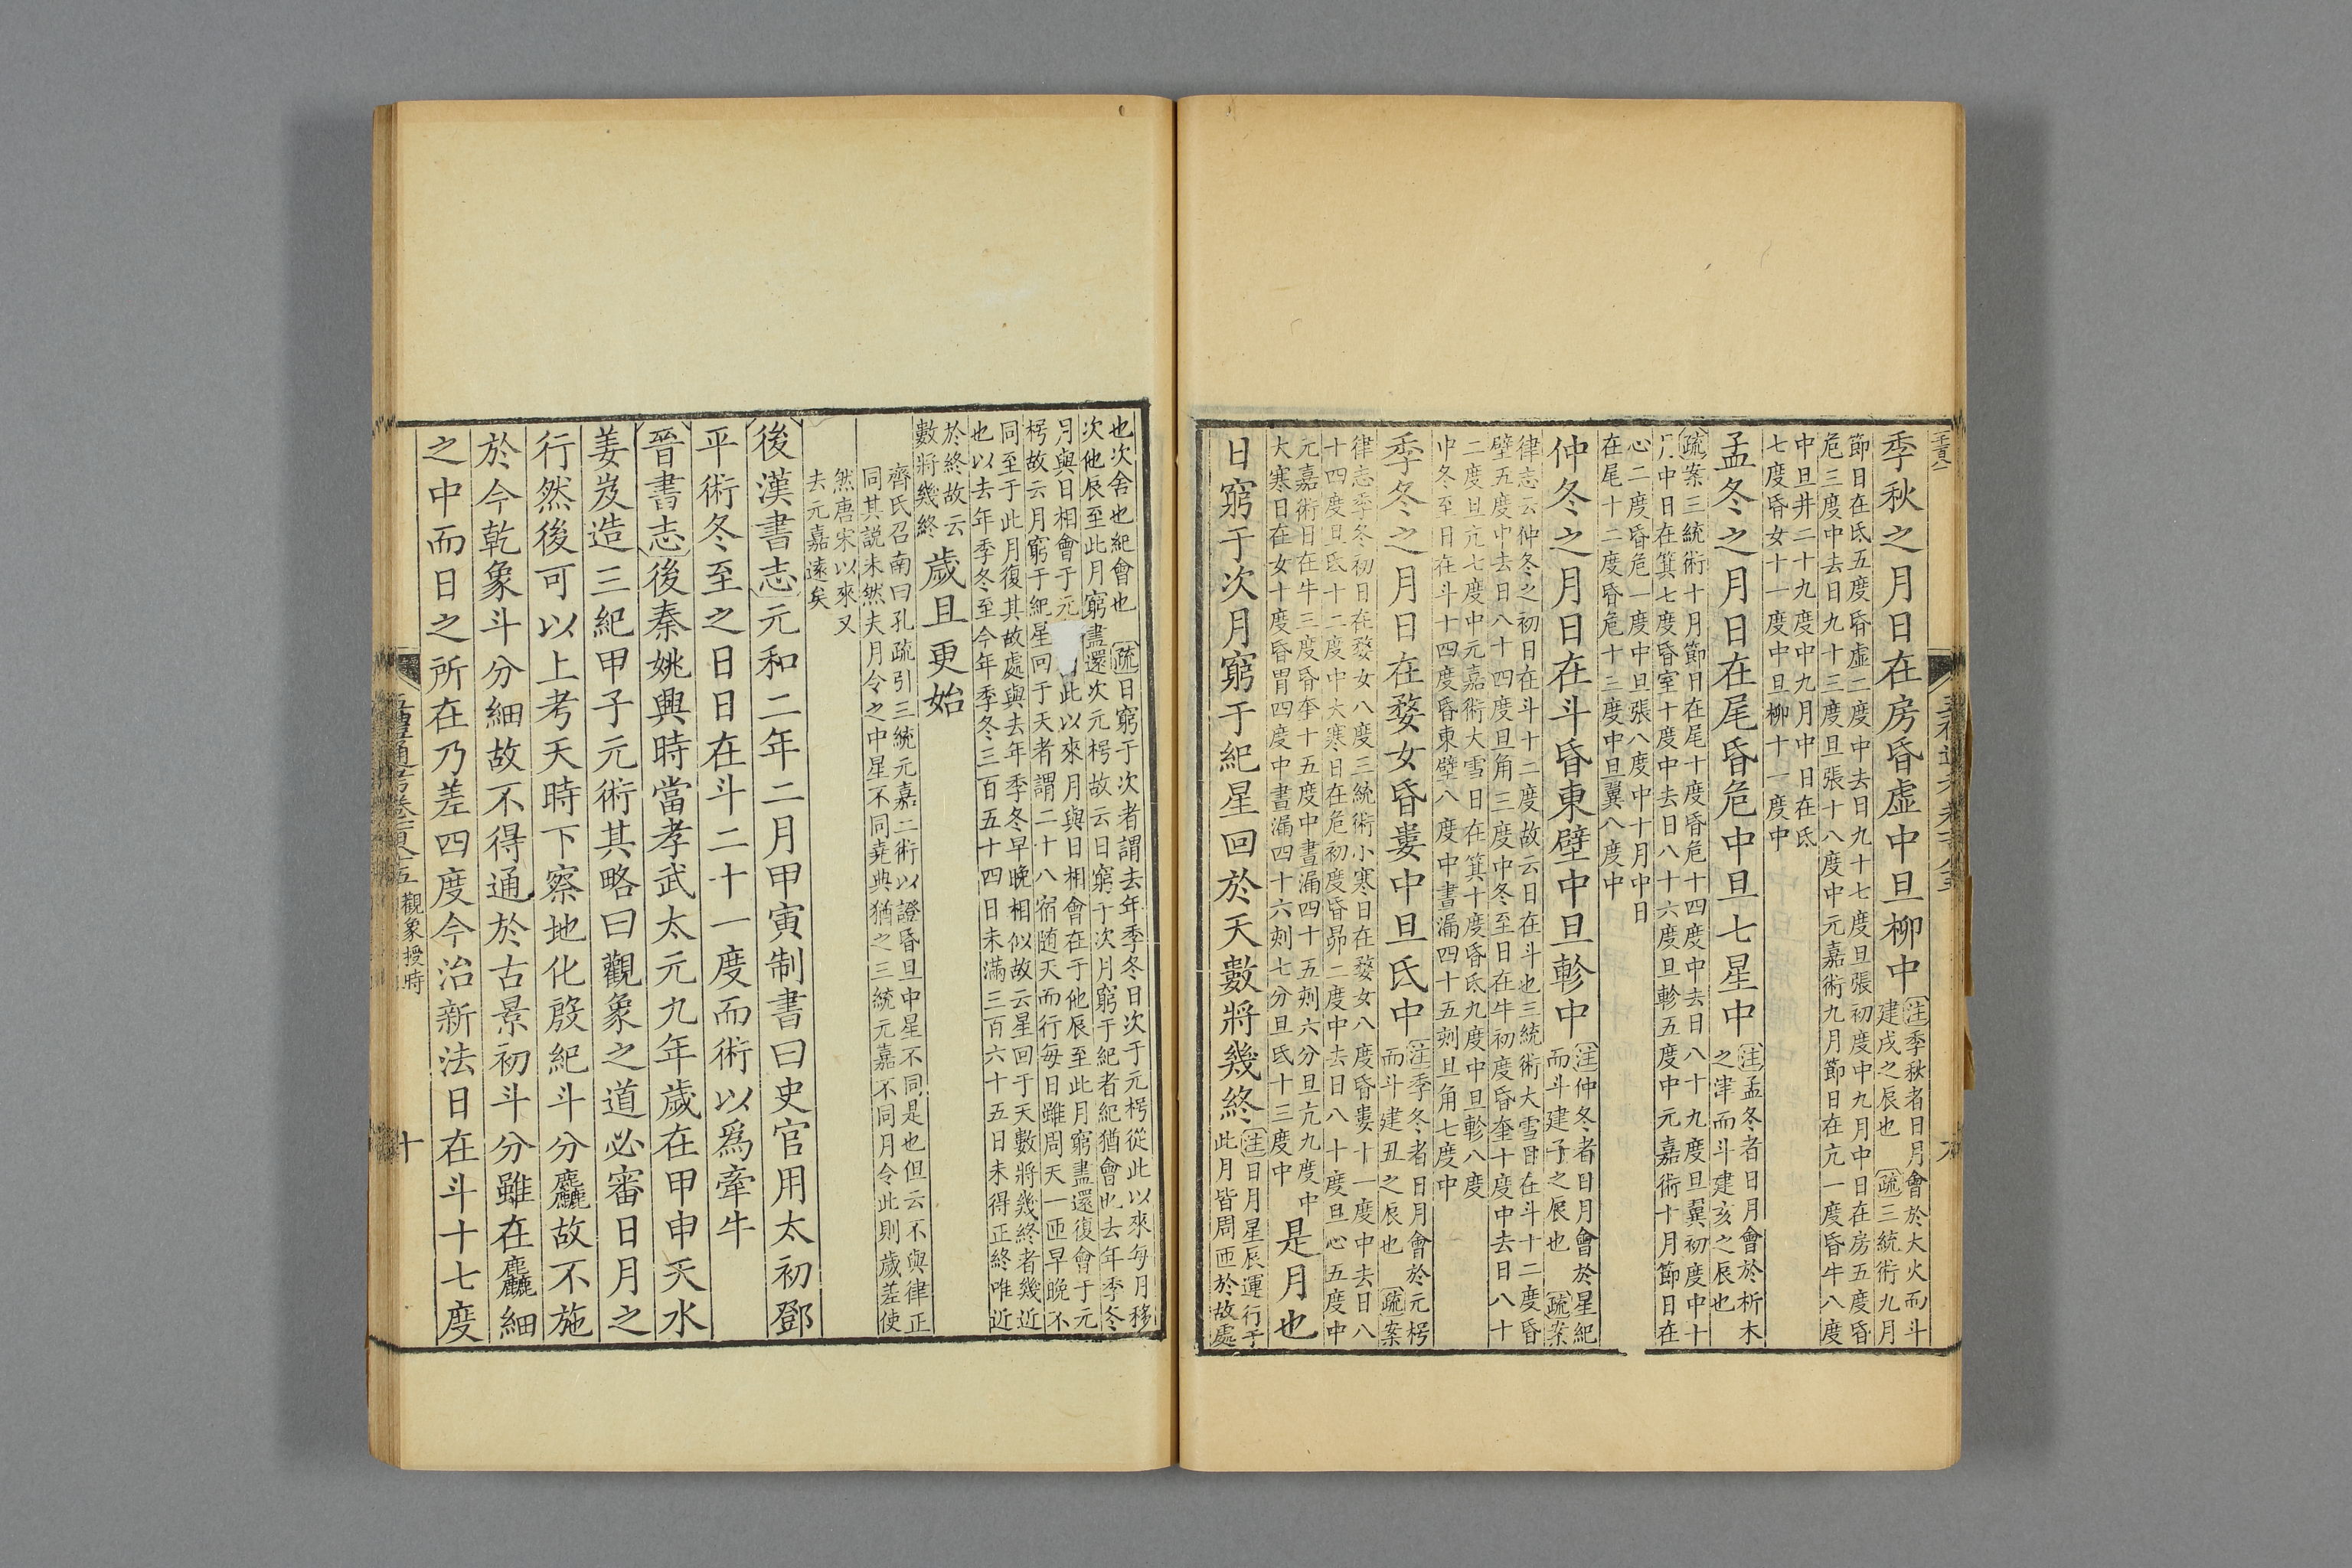 季秋之月日在房昏虛中旦柳中注季秋者日月會於大火而斗
建戌之辰也疏三統術九月
節日在氐五度昏虛二度中去日九十七度旦張初度中九月中日在房五度昏
危三度中去日九十三度旦張十八度中元嘉術九月節日在亢一度昏牛八度
中旦井二十九度中九月中日在氐
七度昏女十一度中旦柳十一度中
孟冬之月日在尾昏危中旦七星中注孟冬者日月會於析木
之津而斗建亥之辰也
疏案三統術十月節日在尾十度昏危十四度中去日八十九度旦翼初度中十
月中日在箕七度昏室十度中去日八十六度旦軫五度中元嘉術十月節日在
心二度昏危一度中旦張八度中十月中日
在尾十二度昏危十三度中旦翼八度中
仲冬之月日在斗昏東壁中旦軫中注仲冬者日月會於星紀
而斗建子之辰也疏案
律志云仲冬之初日在斗十二度故云日在斗也三統術大雪日在斗十二度昏
壁五度中去日八十四度旦角三度中冬至日在牛初度昏奎十度中去日八十
二度旦亢七度中元嘉術大雪日在箕十度昏氐九度中旦軫八度
中冬至日在斗十四度昏東壁八度中晝漏四十五刻旦角七度中
季冬之月日在婺女昏婁中旦氐中注季冬者日月會於元枵
而斗建丑之辰也疏案
律志季冬初日在婺女八度三統術小寒日在婺女八度昏婁十一度中去日八
十四度旦氐十二度中大寒日在危初度昏昴二度中去日八十度旦心五度中
元嘉術日在牛三度昏奎十五度中晝漏四十五刻六分旦亢九度中
大寒日在女十度昏胃四度中晝漏四十六刻七分旦氐十三度中是月也
日窮于次月窮于紀星回於天數將幾終注日月星辰運行于
此月皆周匝於故處
也次舍也紀會也疏日窮于次者謂去年季冬日次于元枵從此以來每月移
次他辰至此月窮盡還次元枵故云日窮于次月窮于紀者紀猶會也去年季冬
月與日相會于元此以來月與日相會在于他辰至此月窮盡還復會于元
枵故云月窮于紀星回于天者謂二十八宿随天而行每日雖周天一匝早晚不
同至于此月復其故處與去年季冬早晚相似故云星回于天數將幾終者幾近
也以去年季冬至今年季冬三百五十四日未滿三百六十五日未得正終唯近
於終故云
數將幾終歲且更始
齊氏召南曰孔疏引三統元嘉二術以證昏旦中星不同是也但云不與律正
同其説未然夫月令之中星不同堯典猶之三統元嘉不同月令此則歲差使
然唐宋以來又
去元嘉遠矣
後漢書志元和二年二月甲寅制書曰史官用太初鄧
平術冬至之日日在斗二十一度而術以爲牽牛
晉書志後秦姚興時當孝武太元九年歲在甲申天水
姜岌造三紀甲子元術其略曰觀象之道必審日月之
行然後可以上考天時下察地化殷紀斗分麤故不施
於今乾象斗分細故不得通於古景初斗分雖在麤細
之中而日之所在乃差四度今治新法日在斗十七度
觀象授時
十